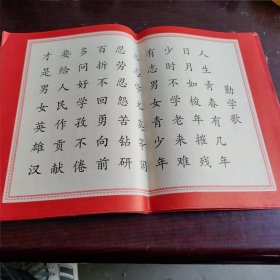 勤学歌
人生青春有几年
日月如梭年摧残
少时不学老来难
有志男女青少年
忍劳忍怨苦钻研
百折不回勇向前
多问好学孜不倦
要给人民作贡献
才是男女英雄汉